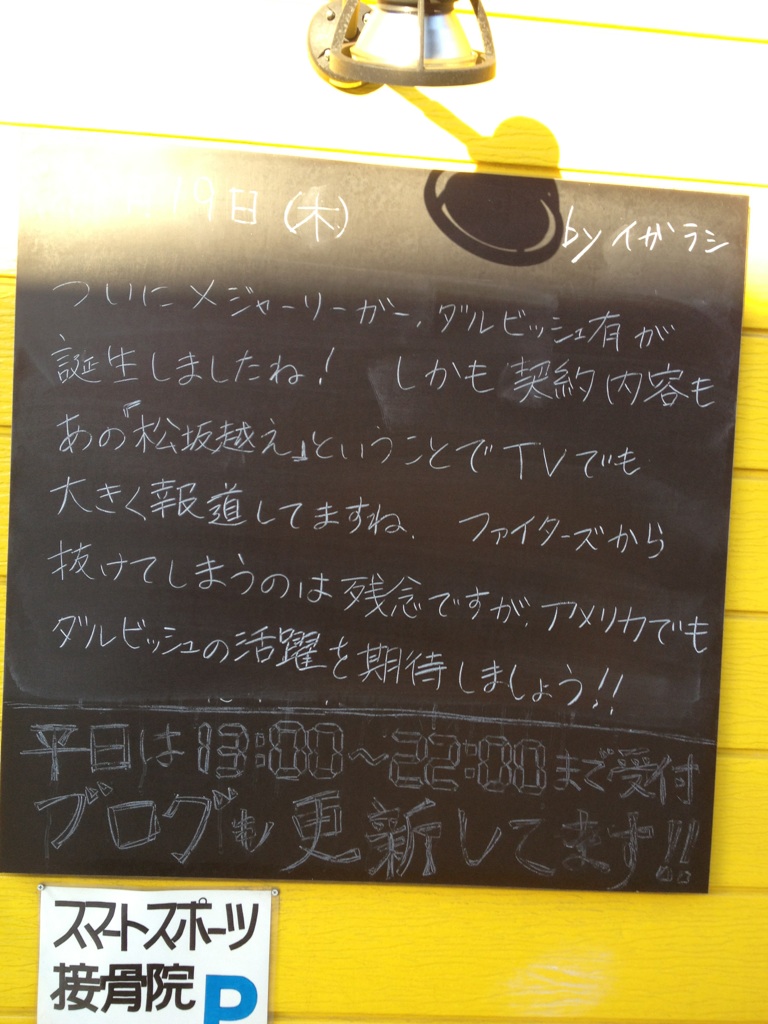 19日(木) byイガラシ
ついにメジャーリーガー、ダルビッシュ有が
誕生しましたね! しかも契約内容も
あの『松坂越え』ということでTVでも
大きく報道してますね。 ファイターズから
抜けてしまうのは残念ですが、アメリカでも
ダルビッシュの活躍を期待しましょう!!
平日は13:00~22:00まで受付
ブログも更新してます!!
スマートスポーツ
接骨院 P